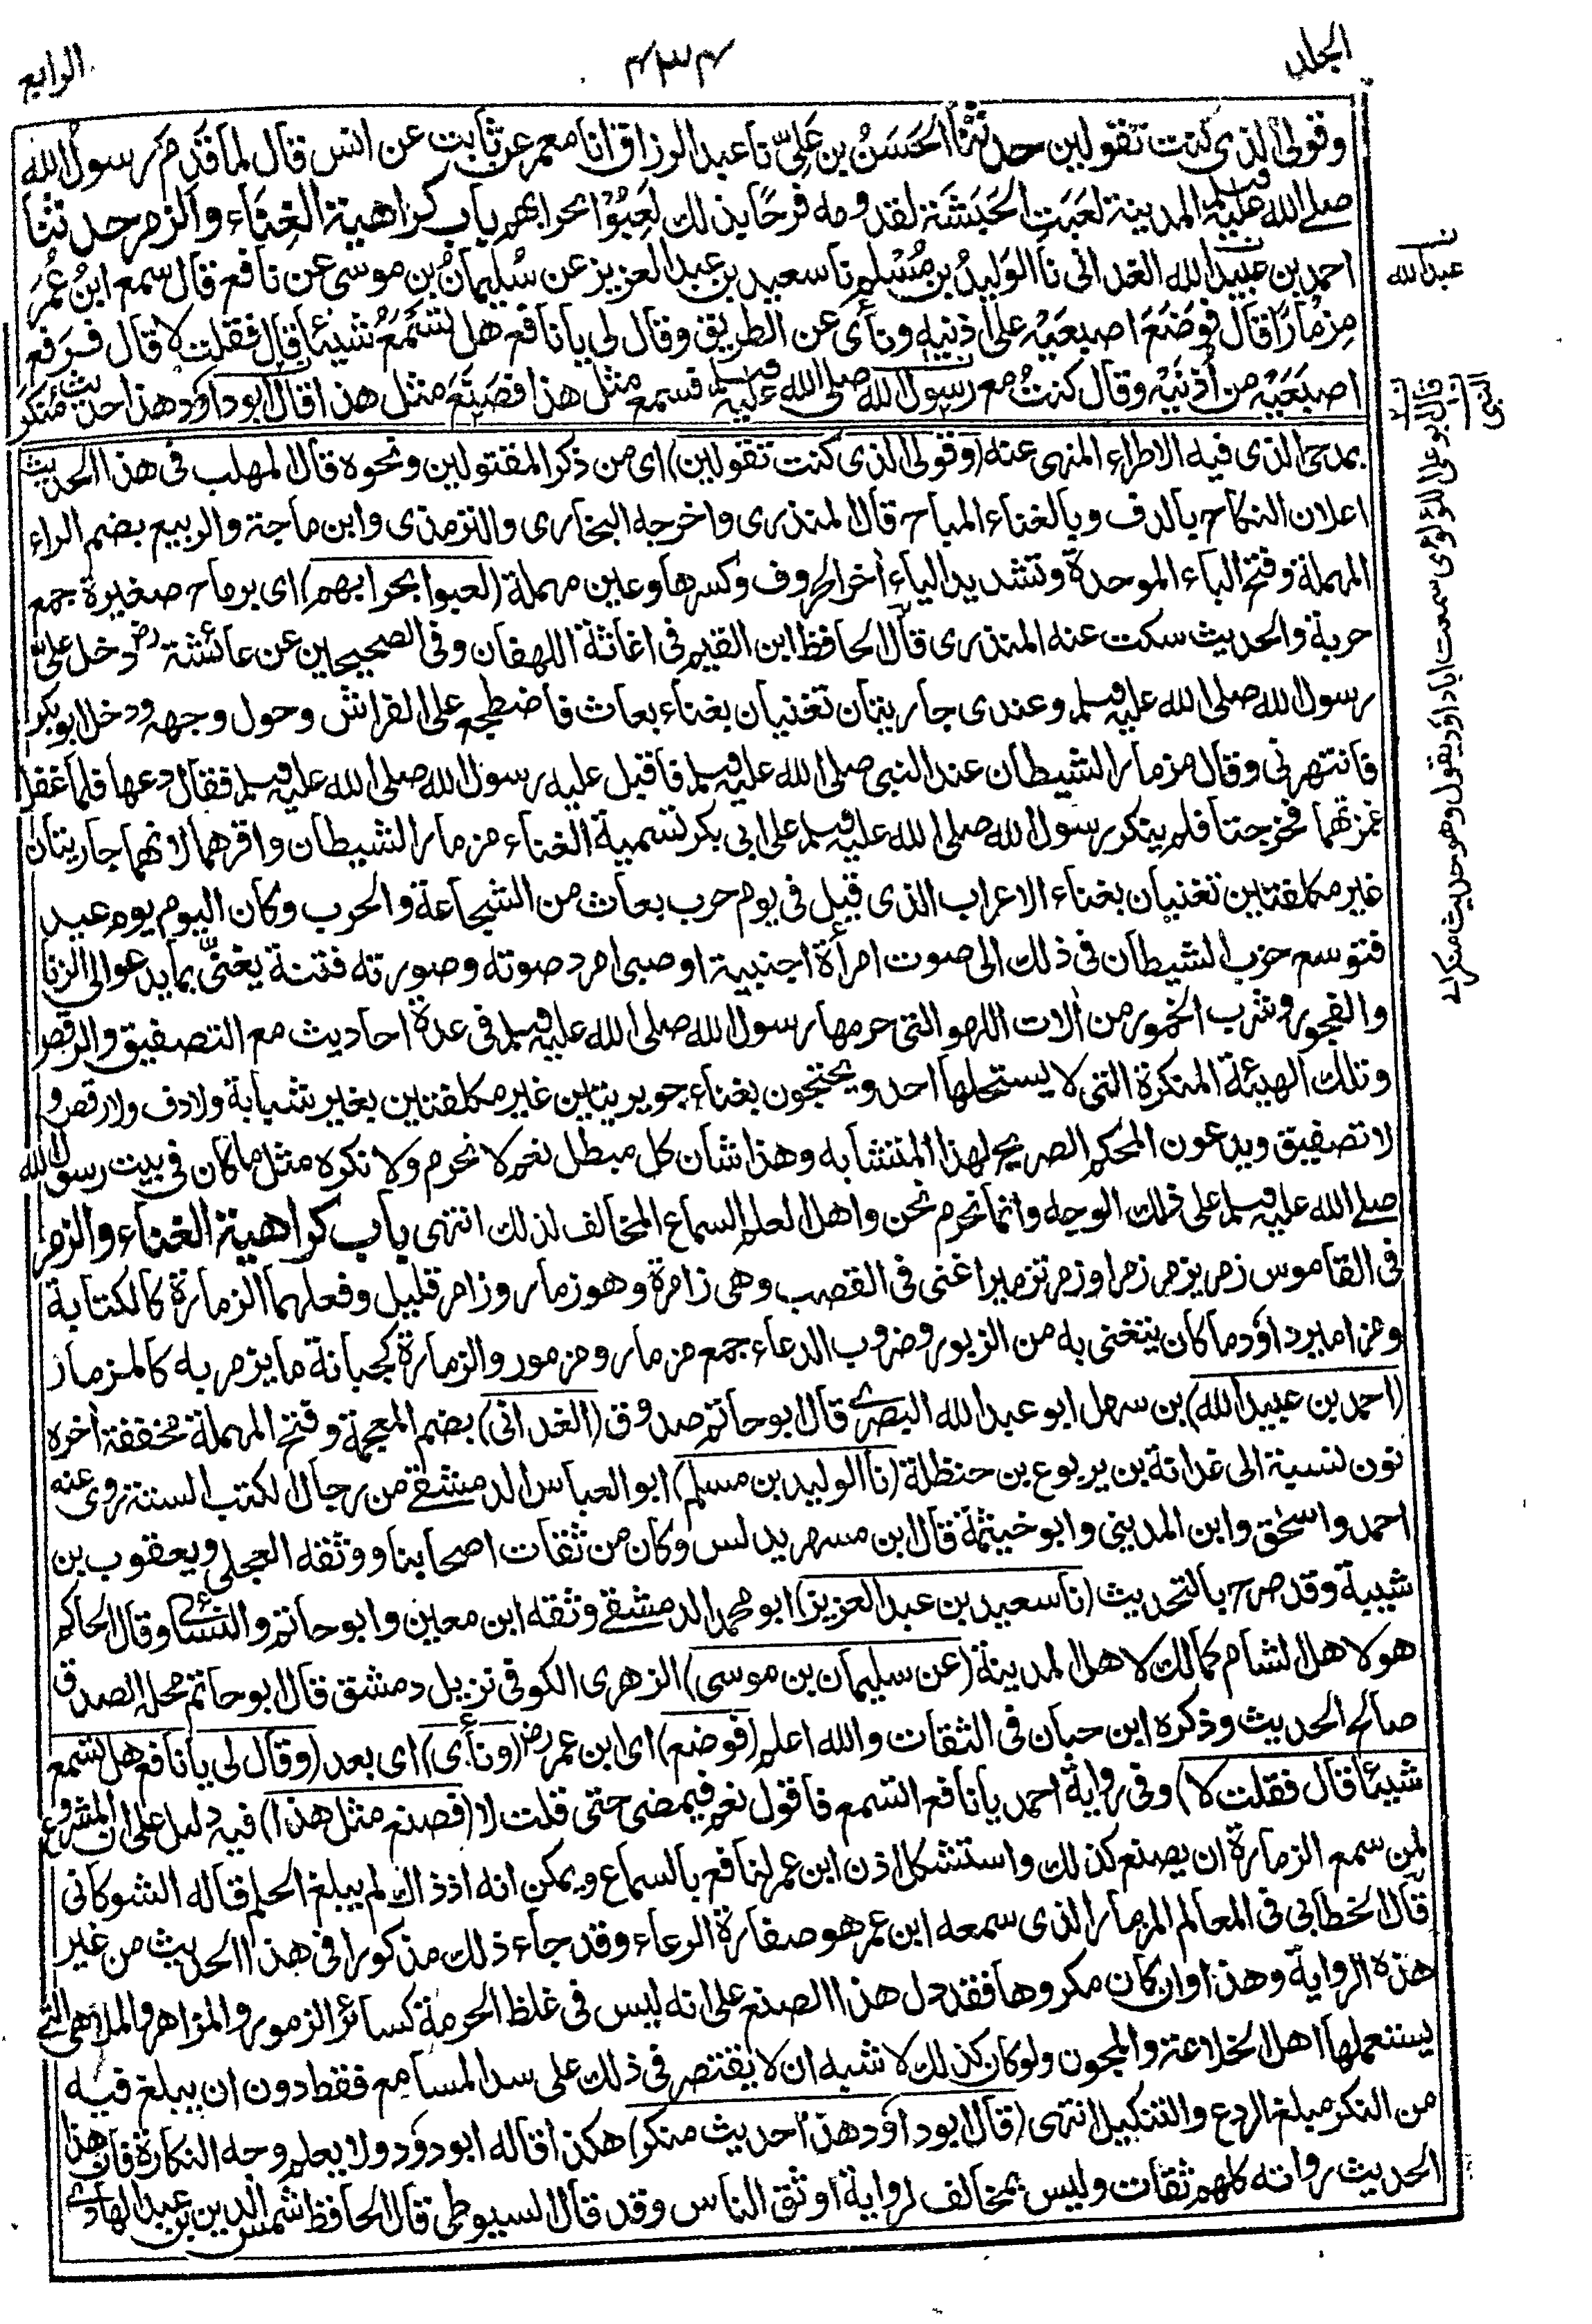 الجلد
۴۳۴
الرابع
وقولى الذى كنت تقولين حدثنا الحسن بن علىّ نا عبد الرزاق انا معمر عن ثابت عن انس قال لما قدم رسول الله
صلے الله عليه وسلم المدينة لعبت الحبشة لقدومه فرحًا بذلك لعبوا بحرابهم باب كراهية الغناء والزمر حدثنا
احمد بن عبيد الله الغدانى نا الوليد بن مسلم نا سعيد بن عبد العزيز عن سليمان بن موسى عن نافع قال سمع ابن عمر
مزمارًا قال فوضع اصبعيه على اذنيه ونأى عن الطريق وقال لى يا نافع هل تسمع شيئا قال فقلت لا قال فرفع
اصبعيه من أذنيه وقال كنت مع رسول الله صلى الله عليه وسلم فسمع مثل هذا فصنع مثل هذا قال ابو داود هذا حديث منكر
بمدحى الذى فيه الاطراء المنهى عنه (وقولى الذى كنت تقولين) اى من ذكر المقتولين ونحوه قال المهلب فى هذا الحديث
اعلان النكاح بالدف وبالغناء المباح قال المنذرى واخرجه البخارى والترمذى وابن ماجة والربيع بضم الراء
المهملة وفتح الباء الموحدة وتشديد الياء أخر الحروف وكسرها وعين مهملة (لعبوا بحرابهم) اى برماح صغيرة جمع
حربة والحديث سكت عنه المنذرى قال الحافظ ابن القيم فى اغاثة اللهفان وفى الصحيحين عن عائشة رض دخل علىّ
رسول الله صلى الله عليه وسلم وعندى جاريتان تغنيان بغناء بعاث فاضطجع على الفراش وحول وجهه ودخل ابو بكر
فانتهرنى وقال مزمار الشيطان عند النبى صلى الله عليه وسلم فاقبل عليه رسول الله صلى الله عليه وسلم فقال دعها فلما غفل
غمزتهما فخرجتا فلم ينكر رسول الله صلى الله عليه وسلم على ابى بكر تسمية الغناء مزمار الشيطان واقرهما لانهما جاريتان
غير مكلفتين تغنيان بغناء الاعراب الذى قيل فى يوم حرب بعاث من الشجاعة والحرب وكان اليوم يوم عيد
فتوسع حزب الشيطان فى ذلك الى صوت امرأة اجنبية او صبى امرد صوته وصورته فتنة يغنىّ بما يدعو الى الزنا
والفجور وشرب الخمور من ألات اللهو التى حرمها رسول الله صلى الله عليه وسلم فى عدة احاديث مع التصفيق والرقص
وتلك الهيئة المنكرة التى لا يستحلها احد ويحتجون بغناء جويريتين غير مكلفتين بغير شبابة ولا دف ولا رقص و
لا تصفيق ويدعون المحكم الصريح لهذا المتشابه وهذا شان كل مبطل نعم لا نحرم ولا نكره مثل ما كان فى بيت رسول الله
صلے الله عليه وسلم على ذلك الوجه وانما نحرم نحن واهل العلم السماع المخالف لذلك انتهى باب كراهية الغناء والزمر
فى القاموس زمر يزمر زمرا وزمر تزميرا غنى فى القصب وهى زامرة وهو زمار وزامر قليل وفعلهما الزمارة كالكتابة
ومزامير داود ما كان يتغنى به من الزبور وضروب الدعاء جمع مزمار ومزمور والزمارة كجبانة ما يزمر به كالمزمار
(احمد بن عبيد الله) بن سهل ابو عبد الله البصرے قال ابو حاتم صدوق (الغدانى) بضم المعجمة وفتح المهملة مخففة أخره
نون نسبة الى غدانة بن يربوع بن حنظلة (نا الوليد بن مسلم) ابو العباس الدمشقے من رجال الكتب الستة روى عنه
احمد واسحٰق وابن المدينى وابو خيثمة قال ابن مسهر يدلس وكان من ثقات اصحابنا ووثقه العجلى ويعقوب بن
شيبة وقد صرح بالتحديث (نا سعيد بن عبد العزيز) ابو محمد الدمشقے وثقه ابن معين وابو حاتم والنسائے وقال الحاكم
هو لاهل الشام كمالك لاهل المدينة (عن سليمان بن موسى) الزهرى الكوفى نزيل دمشق قال ابو حاتم محله الصدق
صالح الحديث وذكره ابن حبان فى الثقات والله اعلم (فوضع) اى ابن عمر رض (ونأى) اى بعد (وقال لى يا نافع هل تسمع
شيئا قال فقلت لا) وفى رواية احمد يا نافع اتسمع فاقول نعم فيمضى حتى قلت لا (فصنع مثل هذا) فيه دليل على ان المشروع
لمن سمع الزمارة ان يصنع كذلك واستشكل اذن ابن عمر لنافع بالسماع ويمكن انه اذ ذاك لم يبلغ الحلم قاله الشوكانى
قال الخطابى فى المعالم المزمار الذى سمعه ابن عمر هو صفارة الرعاء وقد جاء ذلك مذكورا فى هذا الحديث من غير
هذه الرواية وهذا وان كان مكروها فقد دل هذا الصنع على انه ليس فى غلظ الحرمة كسائر الزمور والمزاهر والملاهى التے
يستعملها اهل الخلاعة والمجون ولو كان كذلك لاشبه ان لا يقتصر فى ذلك على سد المسامع فقط دون ان يبلغ فيه
من النكر مبلغ الردع والتنكيل انتهى (قال ابو داود هذا حديث منكر) هكذا قاله ابو داود ولا يعلم وجه النكارة فان هذا
الحديث رواته كلهم ثقات وليس بمخالف لرواية اوثق الناس وقد قال السيوطى قال الحافظ شمس الدين بن عبد الهادے
عبد الله
النبى
قال ابو على اللؤلؤى سمعت ابا داود يقول وهو حديث منكر